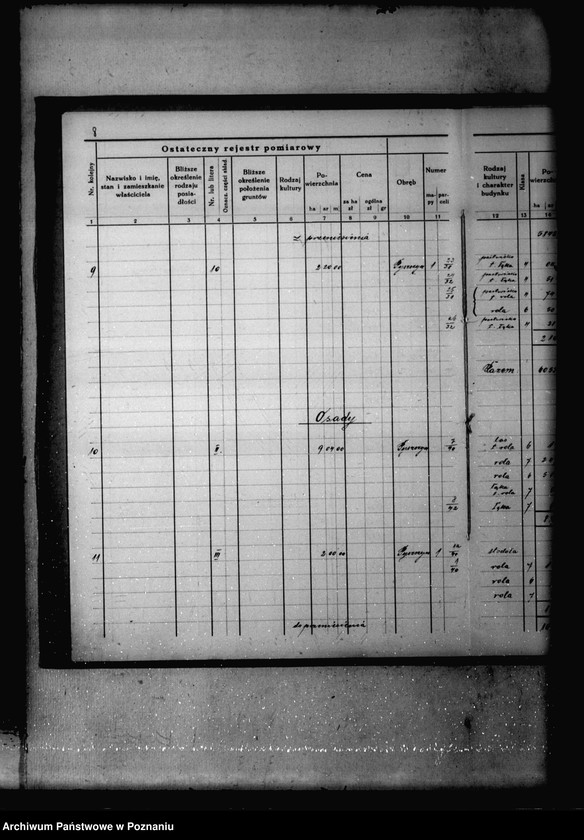 8
Ostateczny rejestr pomiarowy
Nr. kolejny
Nazwisko i imię, stan i zamieszkanie właściciela
Bliższe określenie rodzaju posiadłości
Nr. lub litera
Oznacz. części skład.
Bliższe określenie położenia gruntów
Rodzaj kultury
Powierzchnia
ha ar m
Cena
za ha zł
ogólna zł gr
Obręb
Numer
mapy
parceli
Rodzaj kultury i charakter budynku
Klasa
ha ar
1 2 3 4 5 6 7 8 9 10 11 12 13 14
z przeniesienia
9 10 2.20.00 1
pastwisko
ż. łąka 4
pastwisko
ż. łąka 4
pastwisko
ż. rola 4
rola 6
pastwisko
ż. łąka 4
Razem
Osady
10 II. 9.04.00
las
ż. rola 6
rola 7
rola 6
łąka
ż. rola 7
łąka 7
11 III 2.00.00 1
stodoła
rola 7
rola 6
rola 7
do przeniesienia
Archiwum Państwowe w Poznaniu